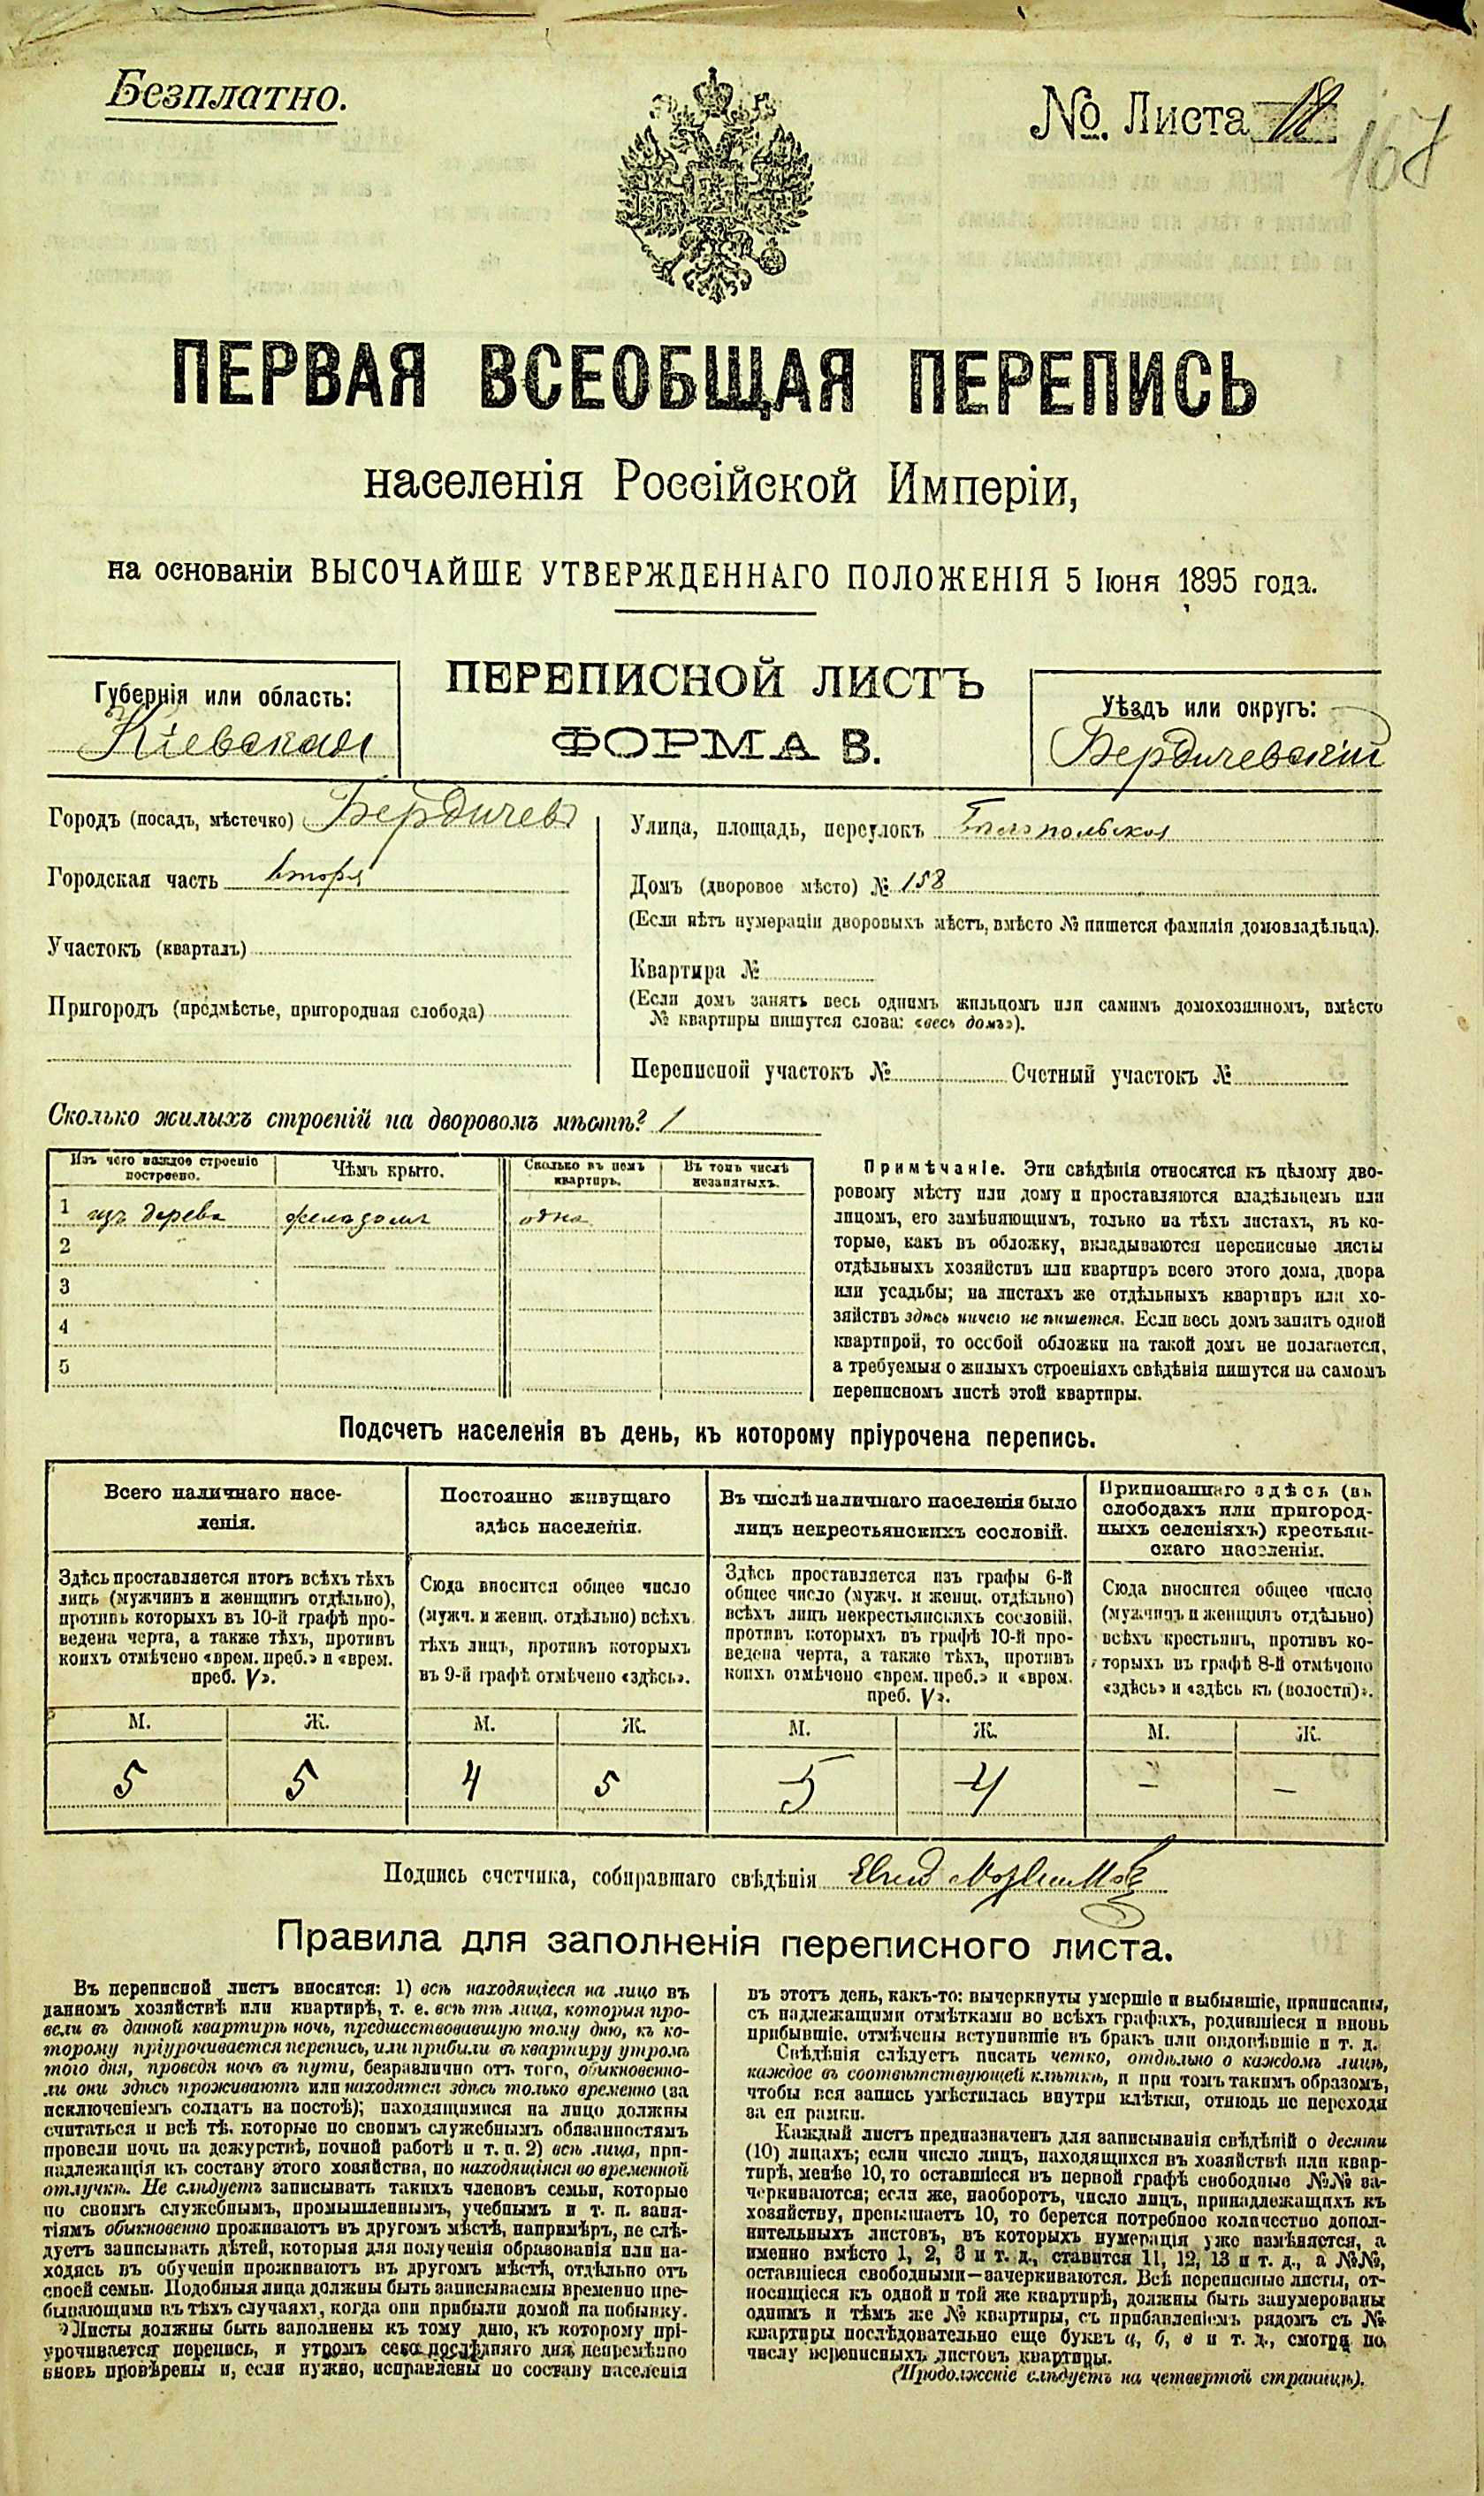 Безплатно.
№. Листа 18
167
ПЕРВАЯ ВСЕОБЩАЯ ПЕРЕПИСЬ
населенія Россійской Имперіи,
на основаніи ВЫСОЧАЙШЕ УТВЕРЖДЕННАГО ПОЛОЖЕНІЯ 5 Іюня 1895 года.
Губернія или область:
Кіевская
ПЕРЕПИСНОЙ ЛИСТЪ
ФОРМА В.
Уѣздъ или округъ:
Бердичевскій
Городъ (посадъ, мѣстечко) Бердичевъ
Городская часть вторая
Участокъ (кварталъ)
Пригородъ (предмѣстье, пригородная слобода)
Улица, площадь, переулокъ
Домъ (дворовое мѣсто) № 158
(Если нѣтъ нумераціи дворовыхъ мѣстъ, вмѣсто № пишется фамилія домовладѣльца).
Квартира №
(Если домъ занятъ весь однимъ жильцомъ или самимъ домохозяиномъ, вмѣсто
№ квартиры пишутся слова: «весь домъ»).
Переписной участокъ № Счетный участокъ №
Сколько жилыхъ строеній на дворовомъ мѣстѣ? 1
Изъ чего каждое строеніе
построено.
Чѣмъ крыто.
Сколько въ немъ
квартиръ.
Въ томъ числѣ
незанятыхъ.
1 изъ дерева железомъ одна
2
3
4
5
Примѣчаніе. Эти свѣдѣнія относятся къ цѣлому дво-
ровому мѣсту или дому и проставляются владѣльцемъ или
лицомъ, его замѣняющимъ, только на тѣхъ листахъ, въ ко-
торые, какъ въ обложку, вкладываются переписные листы
отдѣльныхъ хозяйствъ или квартиръ всего этого дома, двора
или усадьбы; на листахъ же отдѣльныхъ квартиръ или хо-
зяйствъ здѣсь ничего не пишется. Если весь домъ занятъ одной
квартирой, то особой обложки на такой домъ не полагается,
а требуемыя о жилыхъ строеніяхъ свѣдѣнія пишутся на самомъ
переписномъ листѣ этой квартиры.
Подсчетъ населенія въ день, къ которому пріурочена перепись.
Всего наличнаго насе-
ленія.
Здѣсь проставляется итогъ всѣхъ тѣхъ
лицъ (мужчинъ и женщинъ отдѣльно),
противъ которыхъ въ 10-й графѣ про-
ведена черта, а также тѣхъ, противъ
коихъ отмѣчено «врем. преб.» и «врем.
преб. V».
Постоянно живущаго
здѣсь населенія.
Сюда вносится общее число
(мужч. и женщ. отдѣльно) всѣхъ
тѣхъ лицъ, противъ которыхъ
въ 9-й графѣ отмѣчено «здѣсь».
Въ числѣ наличнаго населенія было
лицъ некрестьянскихъ сословій.
Здѣсь проставляется изъ графы 6-й
общее число (мужч. и женщ. отдѣльно)
всѣхъ лицъ некрестьянскихъ сословій,
противъ которыхъ въ графѣ 10-й про-
ведена черта, а также тѣхъ, противъ
коихъ отмѣчено «врем. преб.» и «врем.
преб. V».
Приписаннаго здѣсь (въ
слободахъ или пригород-
ныхъ селеніяхъ) крестьян-
скаго населенія.
Сюда вносится общее число
(мужчинъ и женщинъ отдѣльно)
всѣхъ крестьянъ, противъ ко-
торыхъ въ графѣ 8-й отмѣчено
«здѣсь» и «здѣсь къ (волости)».
М. Ж. М. Ж. М. Ж. М. Ж.
5 5 4 5 5 4 – –
Подпись счетчика, собиравшаго свѣдѣнія
Правила для заполненія переписного листа.
Въ переписной листъ вносятся: 1) всѣ находящіеся на лицо въ
данномъ хозяйствѣ или квартирѣ, т. е. всѣ тѣ лица, которыя про-
вели въ данной квартирѣ ночь, предшествовавшую тому дню, къ ко-
торому пріурочивается перепись, или прибыли въ квартиру утромъ
того дня, проведя ночь въ пути, безразлично отъ того, обыкновенно-
ли они здѣсь проживаютъ или находятся здѣсь только временно (за
исключеніемъ солдатъ на постоѣ); находящимися на лицо должны
считаться и всѣ тѣ, которые по своимъ служебнымъ обязанностямъ
провели ночь на дежурствѣ, ночной работѣ и т. п. 2) всѣ лица, при-
надлежащія къ составу этого хозяйства, но находящіяся во временной
отлучкѣ. Не слѣдуетъ записывать такихъ членовъ семьи, которые
по своимъ служебнымъ, промышленнымъ, учебнымъ и т. п. заня-
тіямъ обыкновенно проживаютъ въ другомъ мѣстѣ, напримѣръ, не слѣ-
дуетъ записывать дѣтей, которыя для полученія образованія или на-
ходясь въ обученіи проживаютъ въ другомъ мѣстѣ, отдѣльно отъ
своей семьи. Подобныя лица должны быть записываемы временно пре-
бывающими въ тѣхъ случаяхъ, когда они прибыли домой на побывку.
Листы должны быть заполнены къ тому дню, къ которому прі-
урочивается перепись, и утромъ сего послѣдняго дня непремѣнно
вновь провѣрены и, если нужно, исправлены по составу населенія
въ этотъ день, какъ-то: вычеркнуты умершіе и выбывшіе, приписаны,
съ надлежащими отмѣтками во всѣхъ графахъ, родившіеся и вновь
прибывшіе, отмѣчены вступившіе въ бракъ или овдовѣвшіе и т. д.
Свѣдѣнія слѣдуетъ писать четко, отдѣльно о каждомъ лицѣ,
каждое въ соотвѣтствующей клѣткѣ, и при томъ такимъ образомъ,
чтобы вся запись умѣстилась внутри клѣтки, отнюдь не переходя
за ея рамки.
Каждый листъ предназначенъ для записыванія свѣдѣній о десяти
(10) лицахъ; если число лицъ, находящихся въ хозяйствѣ или квар-
тирѣ, менѣе 10, то оставшіеся въ первой графѣ свободные №№ за-
черкиваются; если же, наоборотъ, число лицъ, принадлежащихъ къ
хозяйству, превышаетъ 10, то берется потребное количество допол-
нительныхъ листовъ, въ которыхъ нумерація уже измѣняется, а
именно вмѣсто 1, 2, 3 и т. д., ставится 11, 12, 13 и т. д., а №№,
оставшіеся свободными—зачеркиваются. Всѣ переписные листы, от-
носящіеся къ одной и той же квартирѣ, должны быть занумерованы
однимъ и тѣмъ же № квартиры, съ прибавленіемъ рядомъ съ №
квартиры послѣдовательно еще буквъ а, б, в и т. д., смотря по
числу переписныхъ листовъ квартиры.
(Продолженіе слѣдуетъ на четвертой страницѣ).